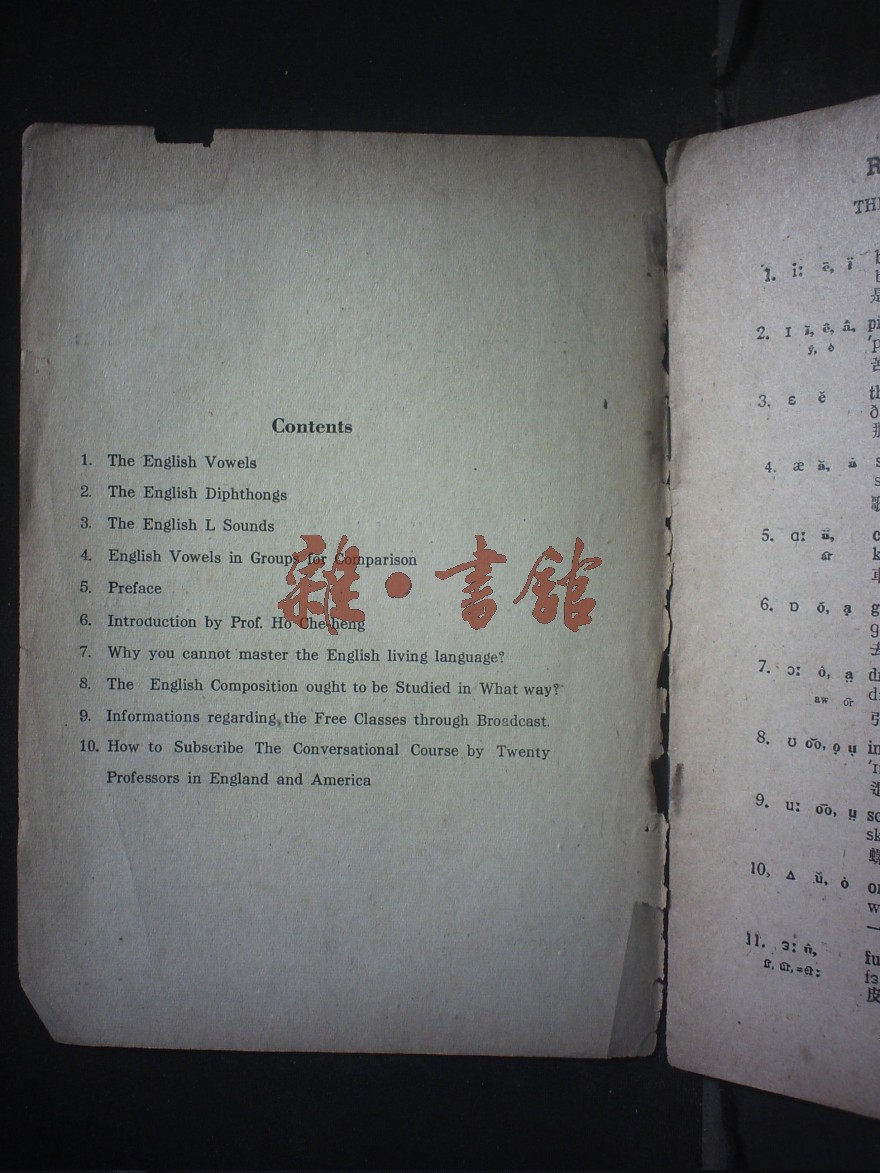 Contents
1. The English Vowels
2. The English Diphthongs
3. The English L Sounds
4. English Vowels in Groups for Comparison
5. Preface
6. Introduction by Prof. Ho Che-heng
7. Why you cannot master the English living language?
8. The English Composition ought to be Studied in What way?
9. Informations regarding, the Free Classes through Broadcast.
10. How to Subscribe The Conversational Course by Twenty
Professors in England and America
雜·書館
R
TH
1. i: ē, ï
是
2. ɪ ĭ, ê, â, pi
'p
苦
3. ɛ ĕ th
ð
4. æ ă, ȧ s
s
5. ɑ: c
k
車
6. ɒ ŏ, ạ g
g
去
7. ɔ: ô, ạ̈ d
aw d
引
8. ʊ o͝o, ọ ụ in
'ɪ
進
9. u: o͞o, ụ̈ sc
sk
螺
10, ʌ ŭ, ȯ o
w
一
11. ɜ: fu
fɜ
皮